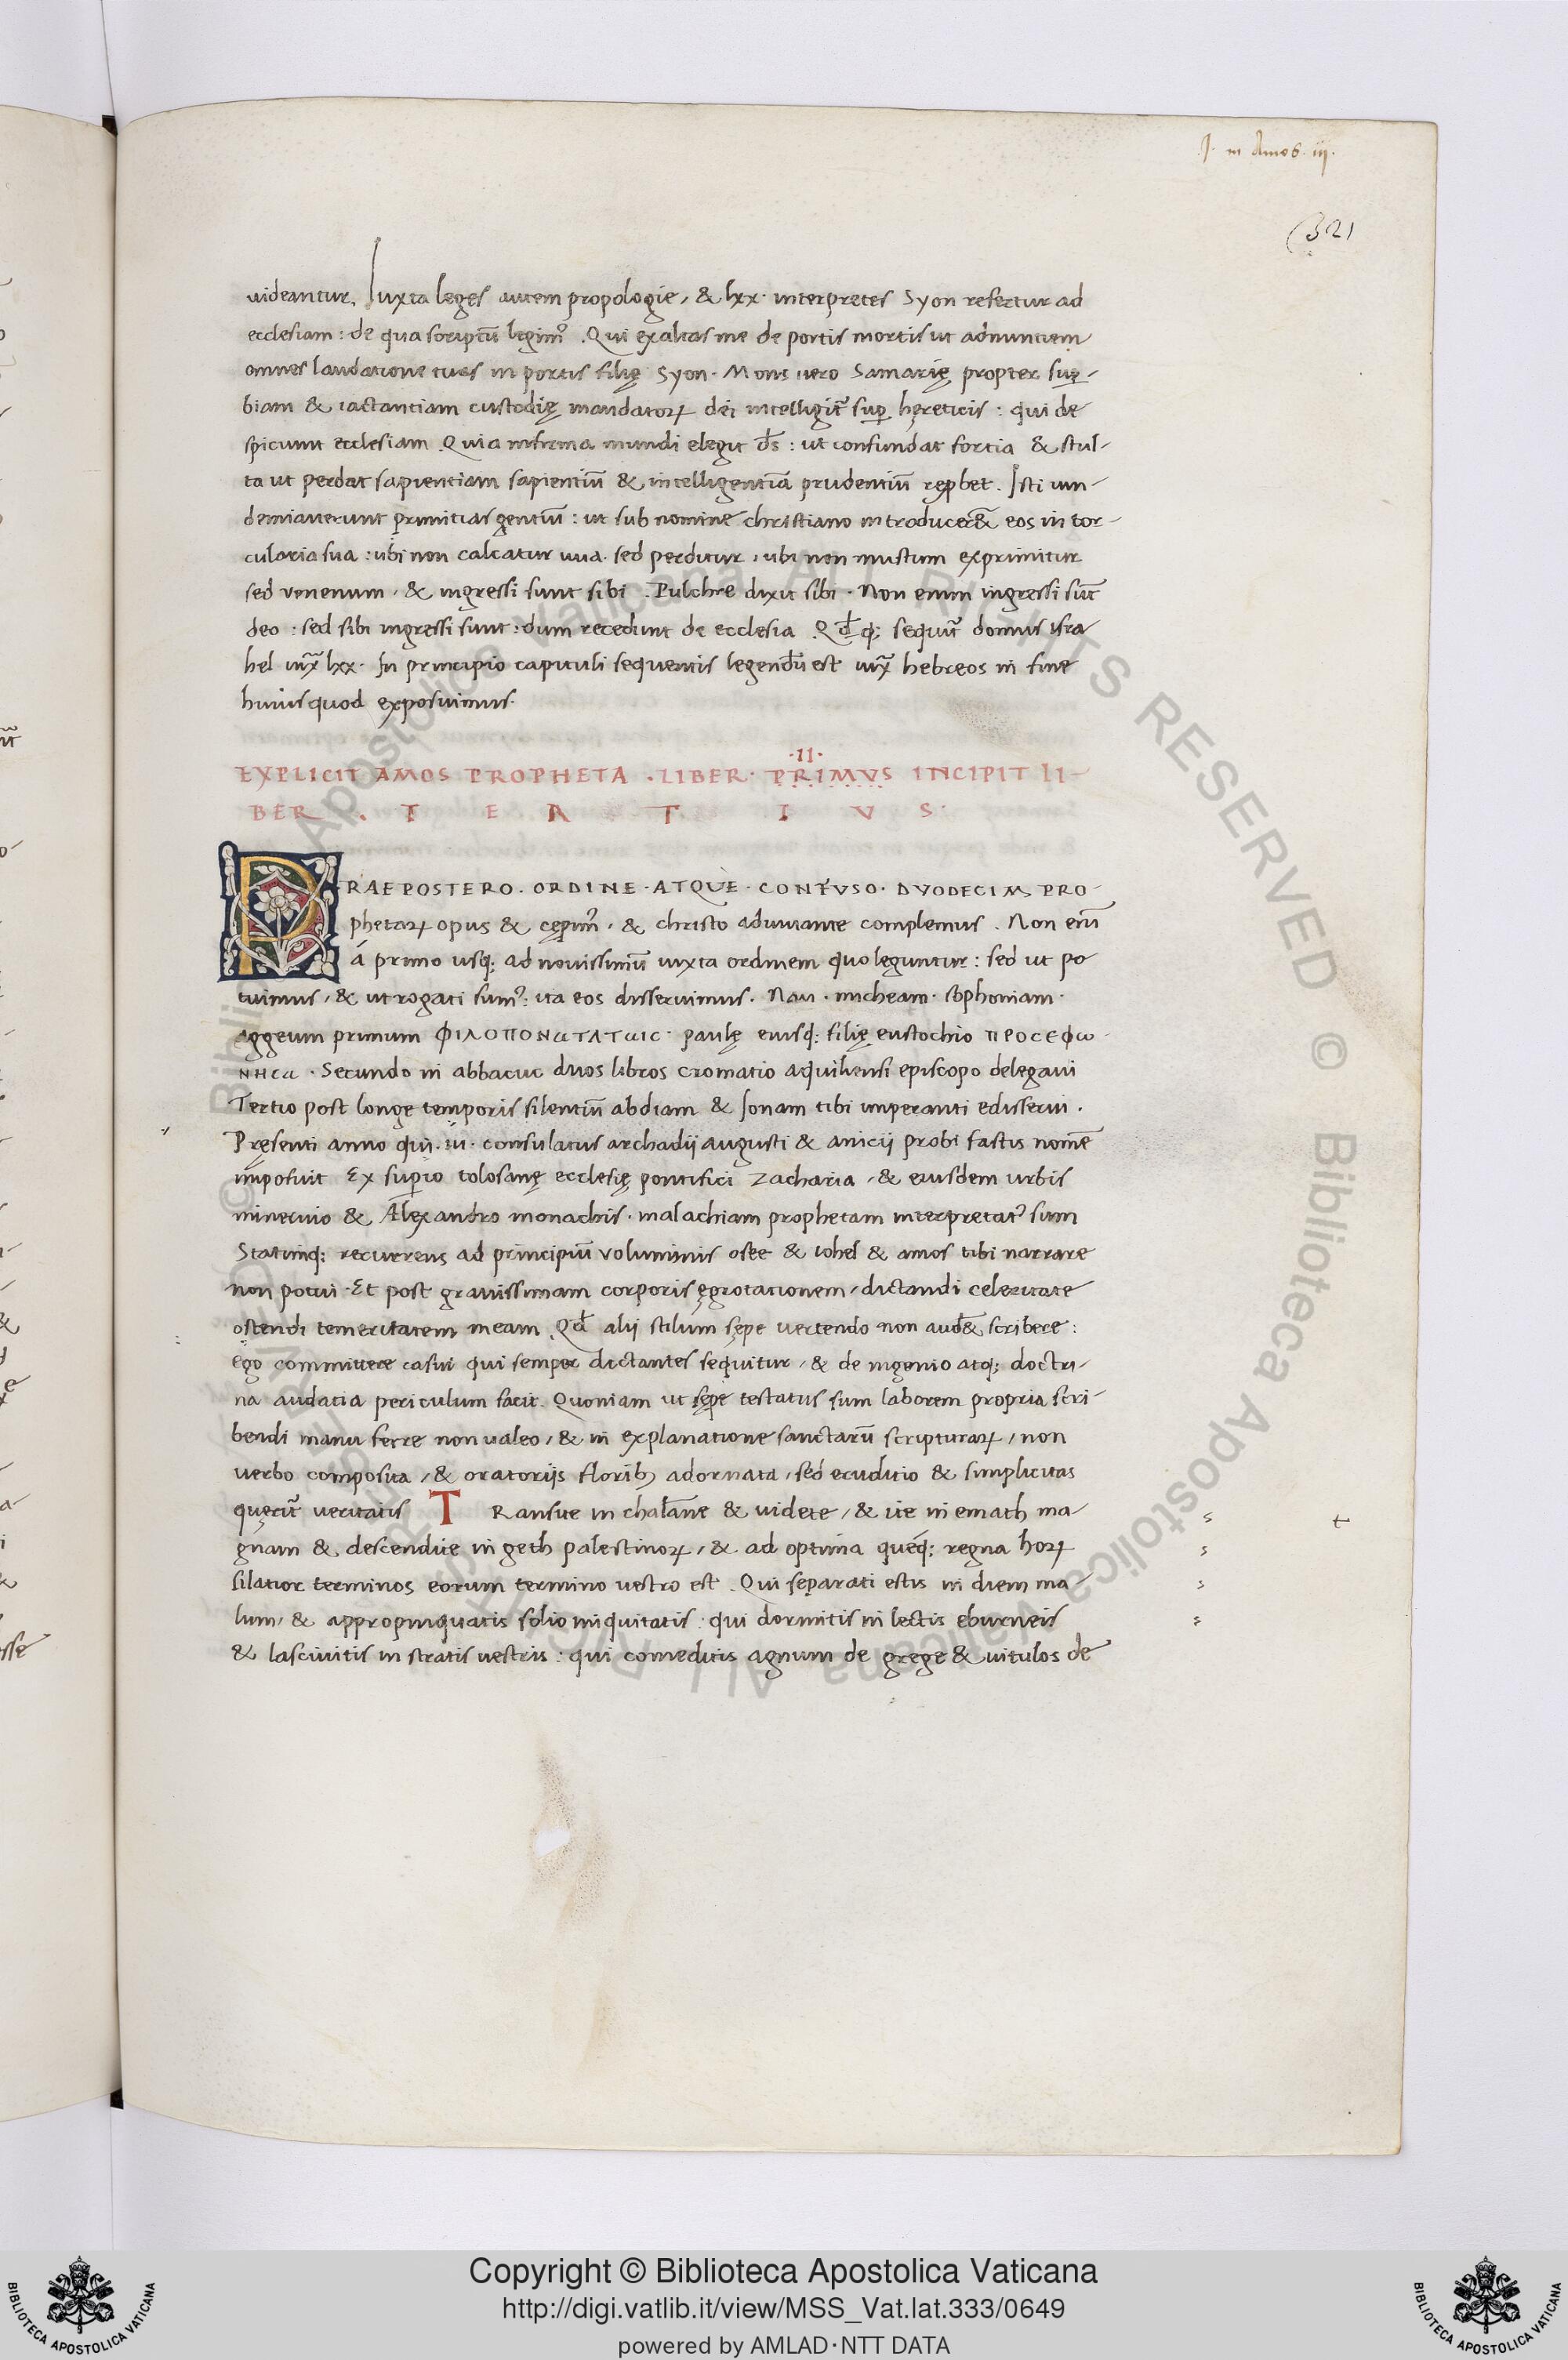 .J. in Amos. iij.
(321
uideantur. Iuxta leges autem propologie, & lxx. interpretes Syon refertur ad
ecclesiam: de qua scriptū legimꝰ. Qui exaltas me de portis mortis ut adnuntiem
omnes laudatione tuas in portis filię Syon. Mons uero Samarię propter suꝑ-
biam & iactantiam custodię mandatoꝝ dei intelligit᷑ suꝑ hęreticis: qui de
spiciunt ecclesiam. Quia infirma mundi elegit d̄s: ut confundat fortia & stul-
ta ut perdat sapientiam sapientiū & intelligentiā prudentiū reꝓbet. Isti uin-
demiauerunt primitias gentiū: ut sub nomine christiano introducer&̄ eos in tor-
cularia sua: ubi non calcatur uua. sed perditur, ubi non mustum exprimitur
sed venenum, & ingressi sunt sibi. Pulchre dixit sibi. Non enim ingressi sūt
deo: sed sibi ingressi sunt: dum recedunt de ecclesia. Qd̄ q; sequit᷑ domus isra
hel iux̄ lxx. In principio capituli sequentis legendū est iux̄ hebreos in fine
huius quod exposuimus.
.II.
EXPLICIT AMOS PROPHETA .LIBER. PRIMVS INCIPIT LI-
BER . T E R T I V S.
PRAEPOSTERO. ORDINE. ATQVE. CONFVSO. DVODECIM PRO-
phetaꝝ opus & cępimꝰ, & christo adiuuante complemus. Non enī
á primo usq; ad nouissimū iuxta ordinem quo leguntur: sed ut po
tuimus, & ut rogati sumꝰ: ita eos disseruimus. Nau. micheam. sophoniam.
aggeum primum ΦΙΛΟΠΟΝωΤΑΤωΙC. paulę eiusq; filię eustochio ΠΡΟCΕΦω
ΝΗCα. Secundo in abbacuc duos libros cromatio aquiliensi episcopo delegaui
Tertio post longe temporis silentiū abdiam & Ionam tibi imperanti edisserui.
Pręsenti anno qui. ui. consulatus archadij augusti & anicii probi fastis nomē
imposuit Ex suꝑio tolosanę ecclesię pontifici Zacharia, & eiusdem urbis
mineruio & Alexandro monachis. malachiam prophetam interpretatꝰ sum
Statimq; recurrens ad principiū voluminis osee & iohel & amos tibi narrare
non potui. Et post grauissimam corporis ęgrotationem, dictandi celeritate
ostendi temeritatem meam. Qd̄ alij stilum sępe uertendo non aud& scribere:
ego committere casui qui semper dictantes sequitur, & de ingenio atq; doctri-
na audatia periculum facit. Quoniam ut sępe testatus sum laborem propria scri-
bendi manu ferre non ualeo, & in explanatione sanctarū scripturaꝝ, non
verbo composita, & oratorijs florib; adornata, sed eruditio & simplicitas
querit᷑ veritatis TRansite in chalāne & uidete, & ite in emath ma-
gnam & descendite in geth palestinoꝝ, & ad optima quęq; regna hoꝝ
si latior terminos eorum termino uestro est. Qui separati estis in diem ma-
lum, & appropinquatis solio iniquitatis: qui dormitis in lectis eburneis
& lasciuitis in stratis uestris: qui comeditis agnum de grege & uitulos de
© Biblioteca Apostolica Vaticana ALL RIGHTS RESERVED
Copyright © Biblioteca Apostolica Vaticana
http://digi.vatlib.it/view/MSS_Vat.lat.333/0649
powered by AMLAD·NTT DATA
BIBLIOTECA APOSTOLICA VATICANA
BIBLIOTECA APOSTOLICA VATICANA